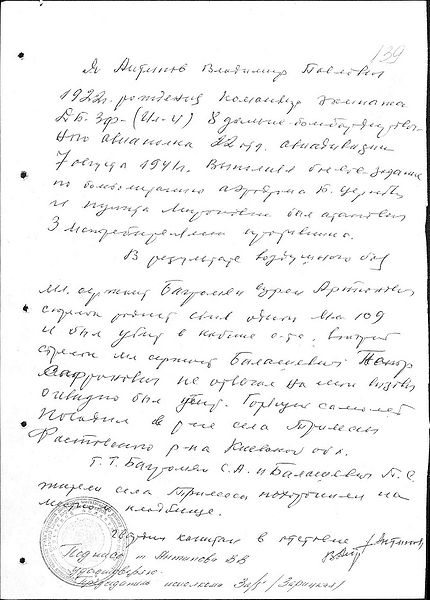 139
Я Антипов Владимир Павлович
1922г. рождения командир экипажа
ДБ-3ф-(Ил-4) 8 дальне-бомбардировоч-
ного авиаполка 22 авиадивизии
7 августа 1941г. Выполнял боевое задание
по бомбометанию аэродрома Б. Церковь
и пункта Мироновка был атакован
3 истребителями противника.
В результате воздушного боя
мл. сержант
стрелок сбил один Ме 109
и был убит в кабине с-та, второй
стрелок мл сержант Балашевич
Сафронович не отвечал на мои вызовы
очевидно был убит. Горящий самолет
посадил в р-не села Трилесы
Фастовского р-на Киевской обл.
Т.Т. С.А. и Балашевич П.С.
жители села Трилесы похоронили на
местном кладбище.
Гвардии капитан в отставке /Антипов/
Подпись т Антипова ВВ
удостоверяю
исполкома /Зарицкая/